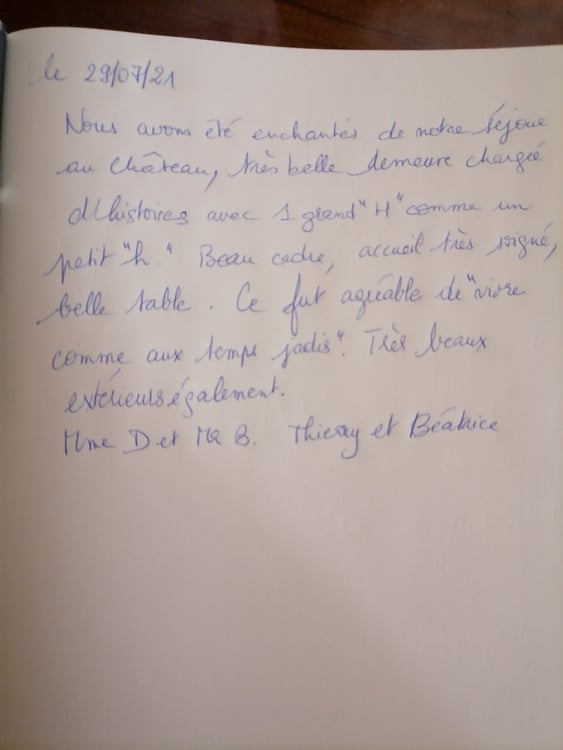 le 29/07/21
Nous avons été enchantés de notre séjour
au Château, très belle demeure chargée
d'histoires avec 1 grand "H" comme un
petit "h." Beau cadre, accueil très soigné,
belle table. Ce fut agréable de "vivre
comme aux temps jadis". Très beaux
extérieurs également.
Mme D et MR B. Thierry et Béatrice